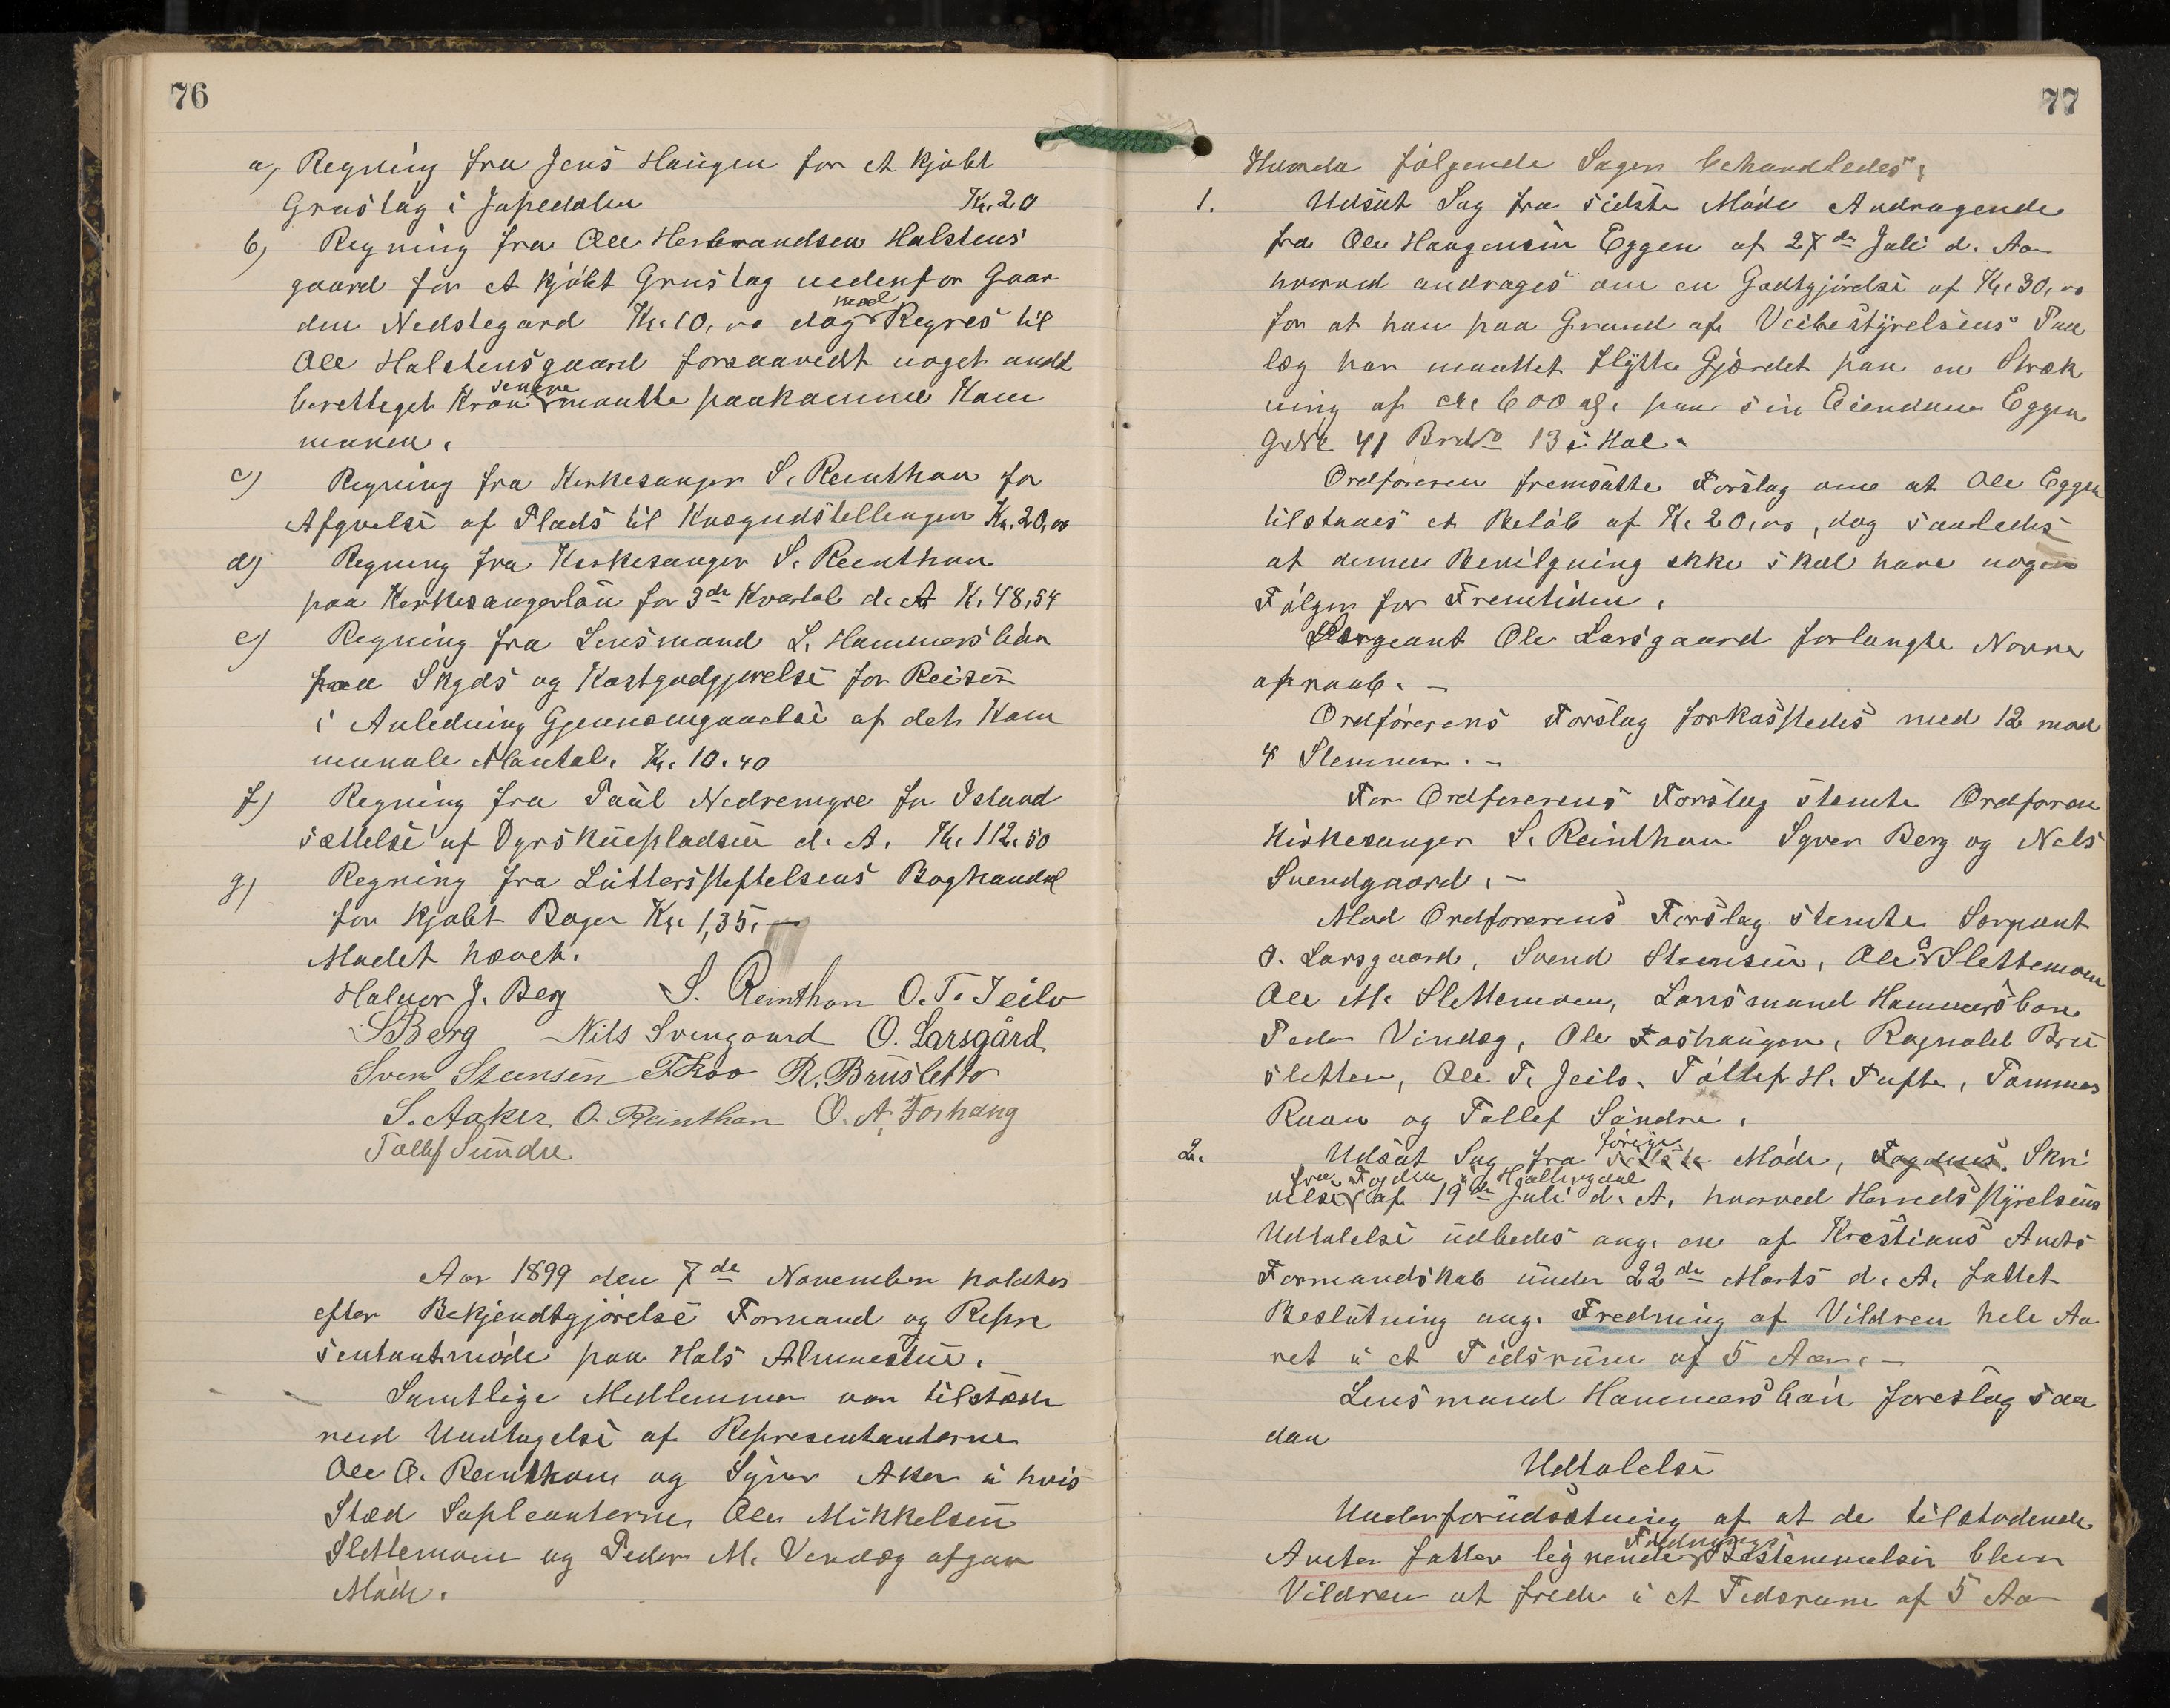 76
a) Regning fra Jens Haugen for et kjøbt
Grustag i Jupedalen Kr. 20
b) Regning fra Ole Herbrandsen Halstens
gaard for et kjøbt Grustag nedenfor Gaar
den Nedstegard Kr. 10,00 dog mod Regres til
Ole Halstensgaard forsaavidt noget andt
berettiget Krav senere maatte paakomme Kom
munen.
c) Regning fra Kirkesanger S. Reinthon for
Afgivelse af Plads til Kvægudstillingen Kr. 20,00
d) Regning fra Kirkesanger S. Reinthon
paa Kirkesangerløn for 3de Kvartal d. A K. 48,54
e) Regning fra Lensmand L. Hammersbøn
paa Skyds og Kostgodgjørelse for Reiser
i Anledning Gjennemgaaelse af det Kom
munale Mantal. Kr. 10.40
f) Regning fra Paul Nedremyre for Istand
sættelse af Dyrskuepladsen d. A. Kr. 112.50
g) Regning fra Lutterstiftelsens Boghandel
for kjøbt Bøger Kr. 1,35.—
Mødet hævet.
Halvor J. Berg S. Reinthon O. T. Jeilo
SBerg Nils Svengaard O. Larsgård
Sven Steensen TRoo R. Brusletto
S. Aaker O. Reinthon O. A. Foshaug
Tollef Sundre
Aar 1899 den 7de November holdtes
efter Bekjendtgjørelse Formand og Repre
sentantmøde paa Hols Almuestue.
Samtlige Medlemmer var tilstæde
med Undtagelse af Representanterne
Ole O. Reinthon og Syver Aker i hvis
Sted Supleanterne Ole Mikkelsen
Slettemoen og Peder M. Vindeg afgav
Møde.
77
Hvorda følgende Sager behandledes:
1. Udsat Sag fra sidste Møde Andragende
fra Ole Haugensen Eggen af 27de Juli d. Aa
hvorved andrages om en Godtgjørelse af Kr. 30,00
for at han paa Grund af Veibestyrelsens Paa
læg har maattet flytte Gjærdet paa en Stræk
ning af ca. 600 al. paa sin Eiendom Eggen
G. No 41 Br. No 13 i Hol.
Ordføreren fremsatte Forslag om at Ole Eggen
tilstaaes et Beløb af K. 20,00, dog saaledes
at denne Bevilgning ikke skal have nogen
Følger for Fremtiden.
Sergeant Ole Larsgaard forlangte Navne
opraab. —
Ordførerens Forslag forkastedes med 12 mod
4 Stemmer. —
For Ordførerens Forslag stemte Ordføreren
Kirkesanger S. Reinthon Syver Berg og Nils
Svendgaard. —
Mod Ordførerens Forslag stemte Sergeant
O. Larsgaard, Svend Steensen, Ole A Slettemoen
Ole M. Slettemoen, Lensmand Hammersbøn
Peder Vindeg, Ole Foshaugen, Ragnald Bru
sletten, Ole T. Jeilo, Tollef H. Tufte, Tommas
Roen og Tollef Sundre.
2. Udsat Sag fra forrige sidste Møde, Fogdens Skri
velse fra Fogden i Hallingdal af 19de Juli d. A. hvorved Herredsstyrelsens
Udtalelse udbedes ang. en af Kristians Amts
Formandskab under 22de Marts d. A. fattet
Beslutning ang. Fredning af Vildren hele Aa
ret i et Tidsrum af 5 Aar. —
Lensmand Hammersbøn foreslog saa
dan
Udtalelse
Under forudsætning af at de tilstødende
Amter fatter lignende Frednings Bestemmelser bliver
Vildren at frede i et Tidsrum af 5 Aa